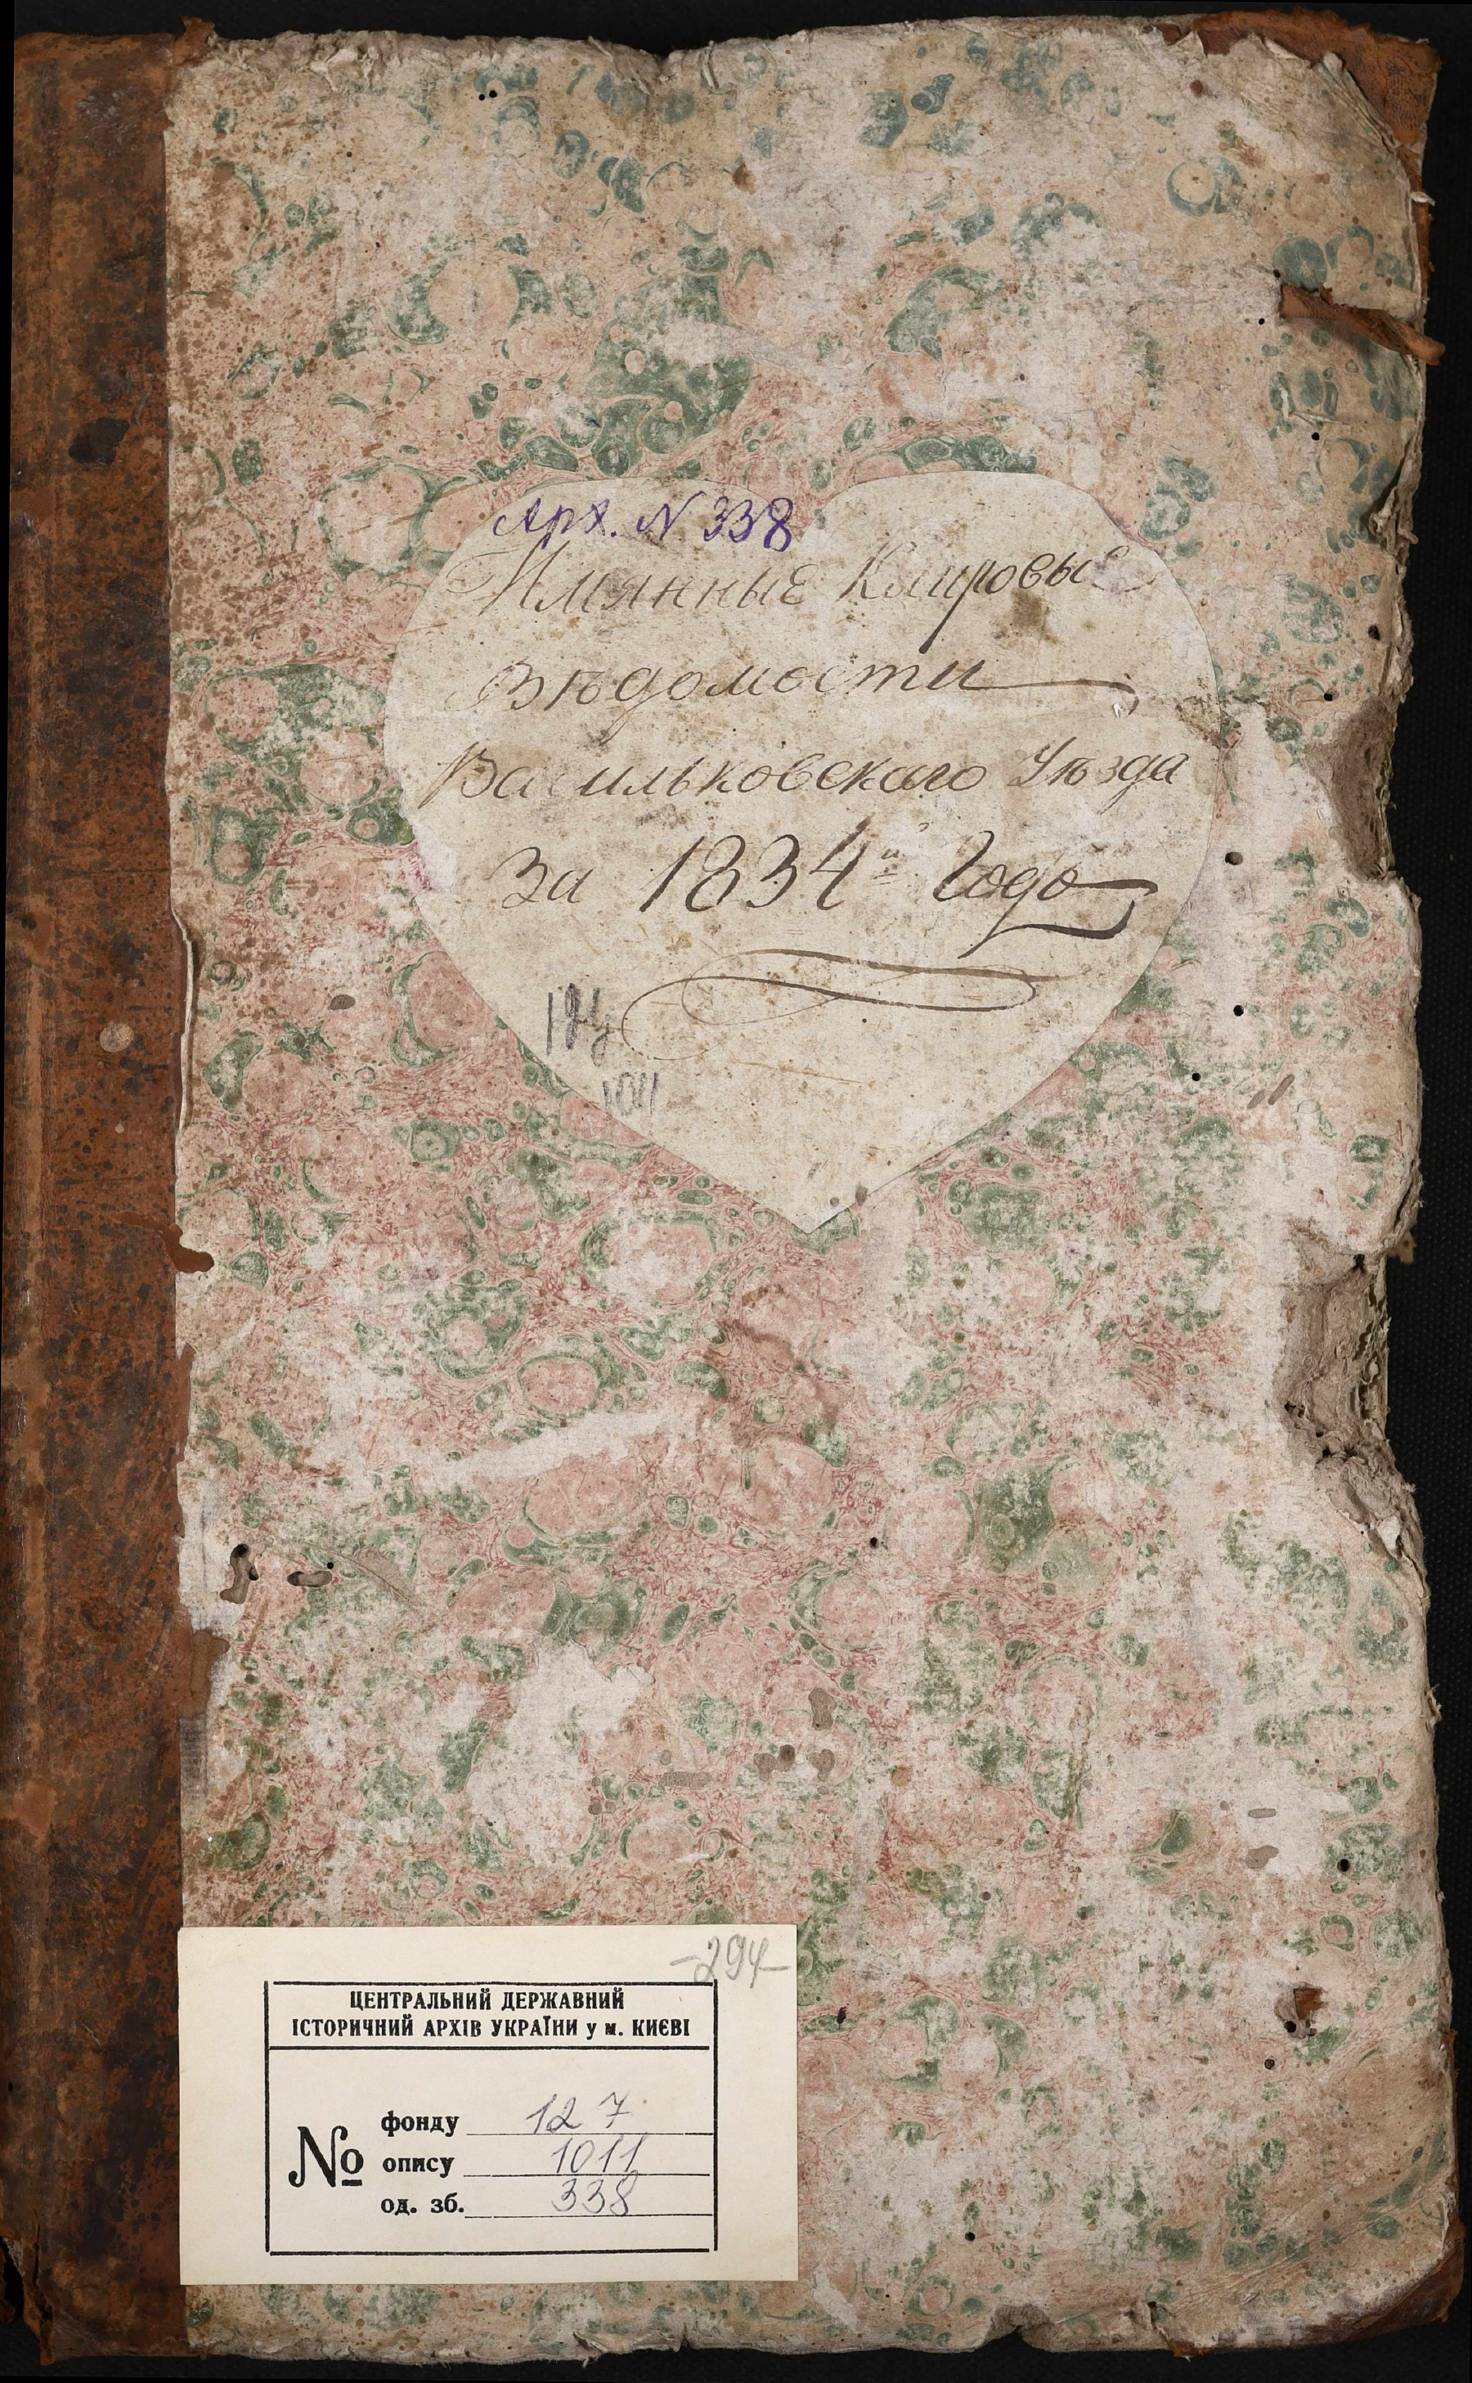 Арх. N 338
Имянные Клировые
Вѣдомости
Васильковского Уѣзда
За 1834й Годъ
1011
-294-
ЦЕНТРАЛЬНИЙ ДЕРЖАВНИЙ
ІСТОРИЧНИЙ АРХІВ УКРАЇНИ у м. КИЄВІ
№
фонду 127
опису 1011
од. зб. 338